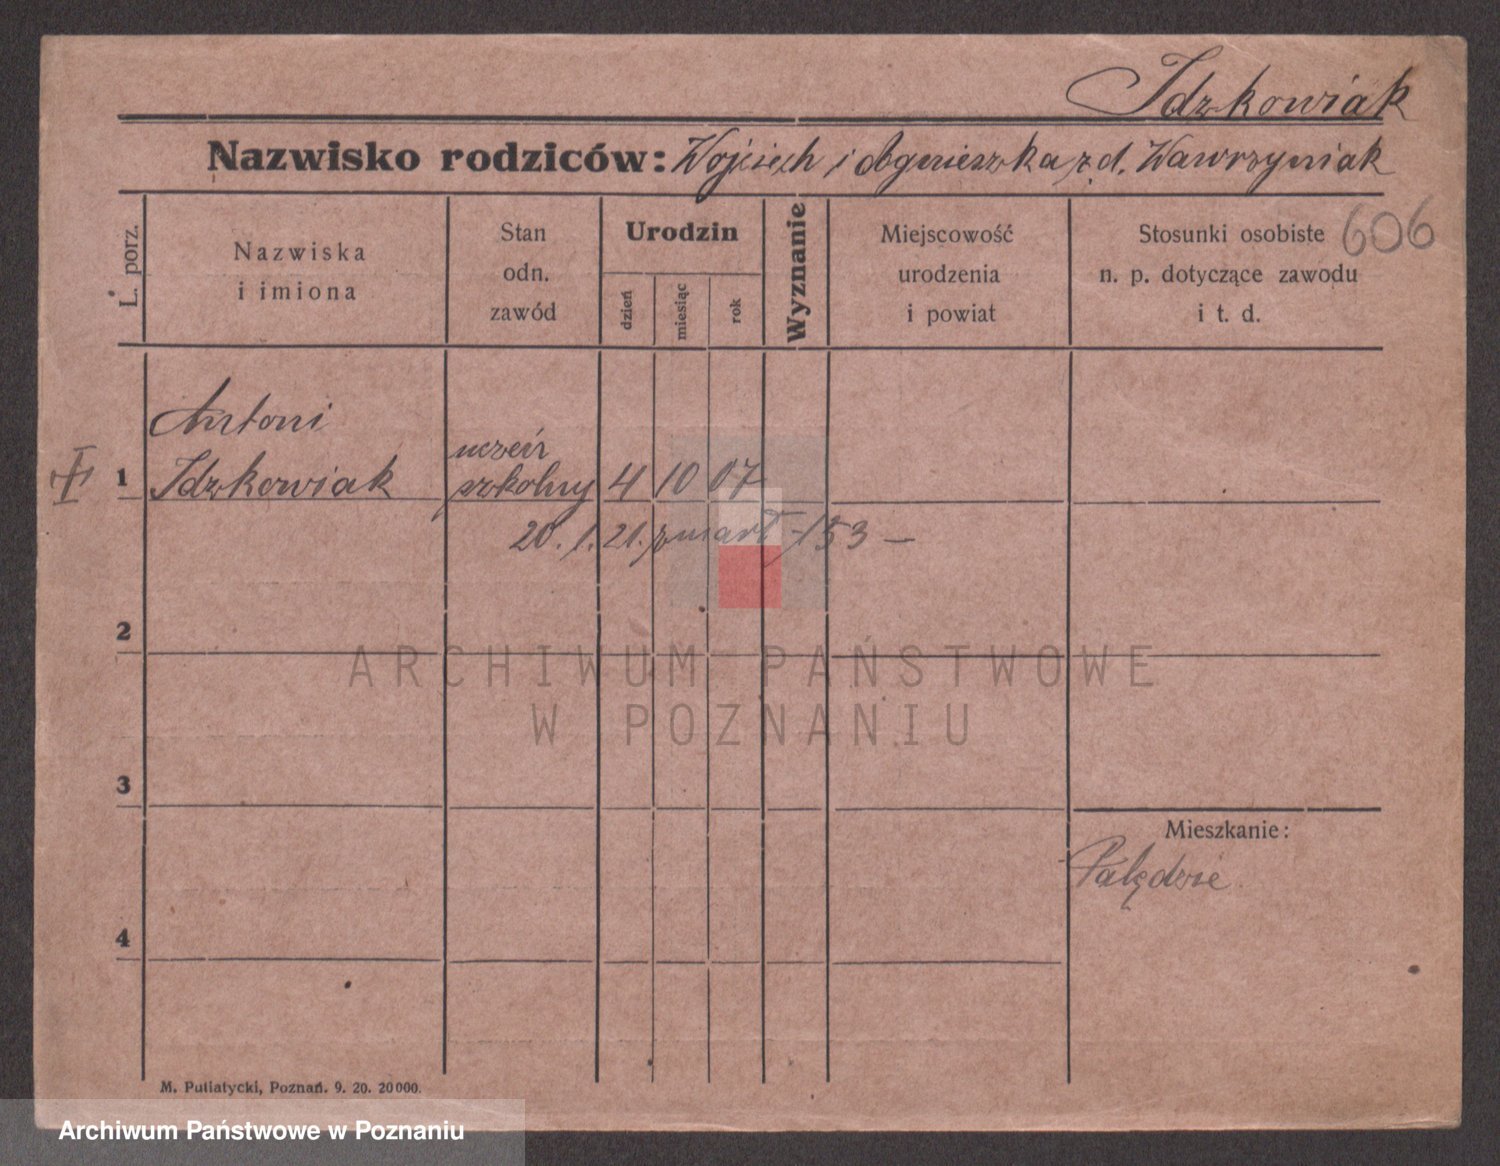 Idzkowiak
Nazwisko rodziców: Wojciech i Agnieszka z d. Wawrzyniak
L. porz.
Nazwiska
i imiona
Stan
odn.
zawód
Urodzin
dzień
miesiąc
rok
Wyznanie
Miejscowość
urodzenia
i powiat
Stosunki osobiste
n. p. dotyczące zawodu
i t. d.
606
Antoni
1 Idzkowiak uczeń szkolny 4 10 07
20. 1. 21. zmarł - 153 —
2
3
4
Mieszkanie:
Palędzie
ARCHIWUM PAŃSTWOWE
W POZNANIU
M. Putiatycki, Poznań. 9. 20. 20000.
Archiwum Państwowe w Poznaniu